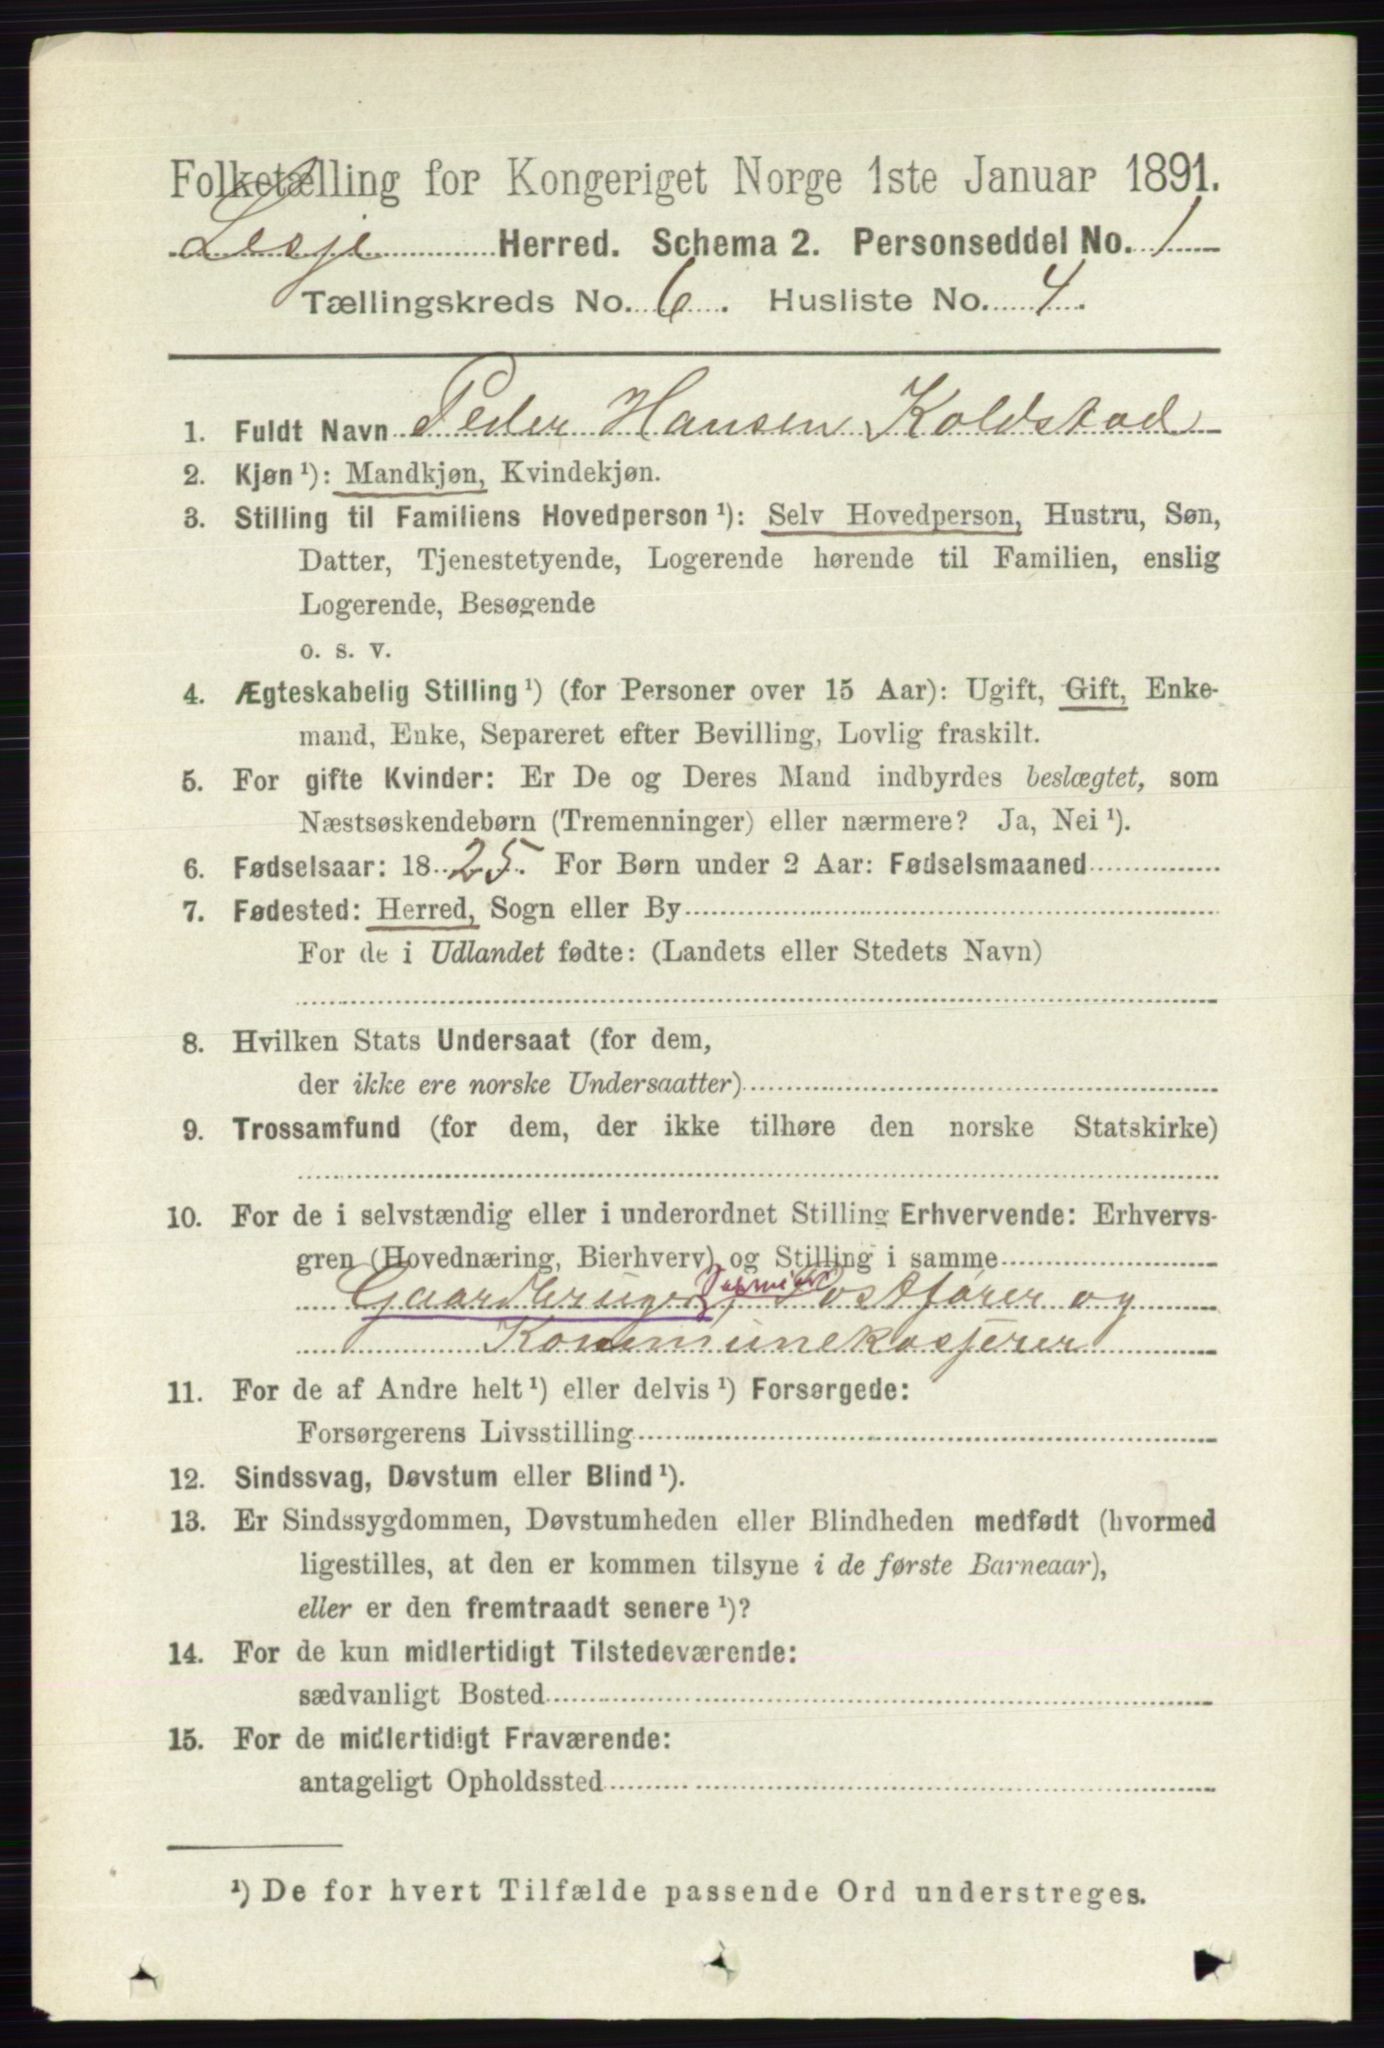 Folketælling for Kongeriget Norge 1ste Januar 1891.
Lesje Herred. Schema 2. Personseddel No. 1
Tællingskreds No. 6. Husliste No. 4.
1. Fuldt Navn Peder Hansen Koldstad
2. Kjøn¹): Mandkjøn, Kvindekjøn.
3. Stilling til Familiens Hovedperson¹): Selv Hovedperson, Hustru, Søn,
Datter, Tjenestetyende, Logerende hørende til Familien, enslig
Logerende, Besøgende
o. s. v.
4. Ægteskabelig Stilling¹) (for Personer over 15 Aar): Ugift, Gift, Enke-
mand, Enke, Separeret efter Bevilling, Lovlig fraskilt.
5. For gifte Kvinder: Er De og Deres Mand indbyrdes beslægtet, som
Næstsøskendebørn (Tremenninger) eller nærmere? Ja, Nei¹).
6. Fødselsaar: 1825. For Børn under 2 Aar: Fødselsmaaned
7. Fødested: Herred, Sogn eller By
For de i Udlandet fødte: (Landets eller Stedets Navn)
8. Hvilken Stats Undersaat (for dem,
der ikke ere norske Undersaatter)
9. Trossamfund (for dem, der ikke tilhøre den norske Statskirke)
10. For de i selvstændig eller i underordnet Stilling Erhvervende: Erhvervs-
gren (Hovednæring, Bierhverv) og Stilling i samme
Gaardbruger, Postfører og
Kommunekasjerer
11. For de af Andre helt¹) eller delvis¹) Forsørgede:
Forsørgerens Livsstilling
12. Sindssvag, Døvstum eller Blind¹).
13. Er Sindssygdommen, Døvstumheden eller Blindheden medfødt (hvormed
ligestilles, at den er kommen tilsyne i de første Barneaar),
eller er den fremtraadt senere¹)?
14. For de kun midlertidigt Tilstedeværende:
sædvanligt Bosted
15. For de midlertidigt Fraværende:
antageligt Opholdssted
¹) De for hvert Tilfælde passende Ord understreges.